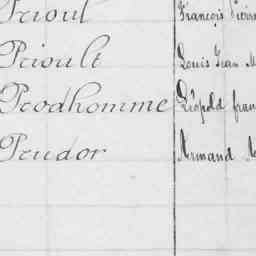 Prioul François Pierre
Prioult Louis Jean M
Prodhomme Léopold fran
Prudor Armand M